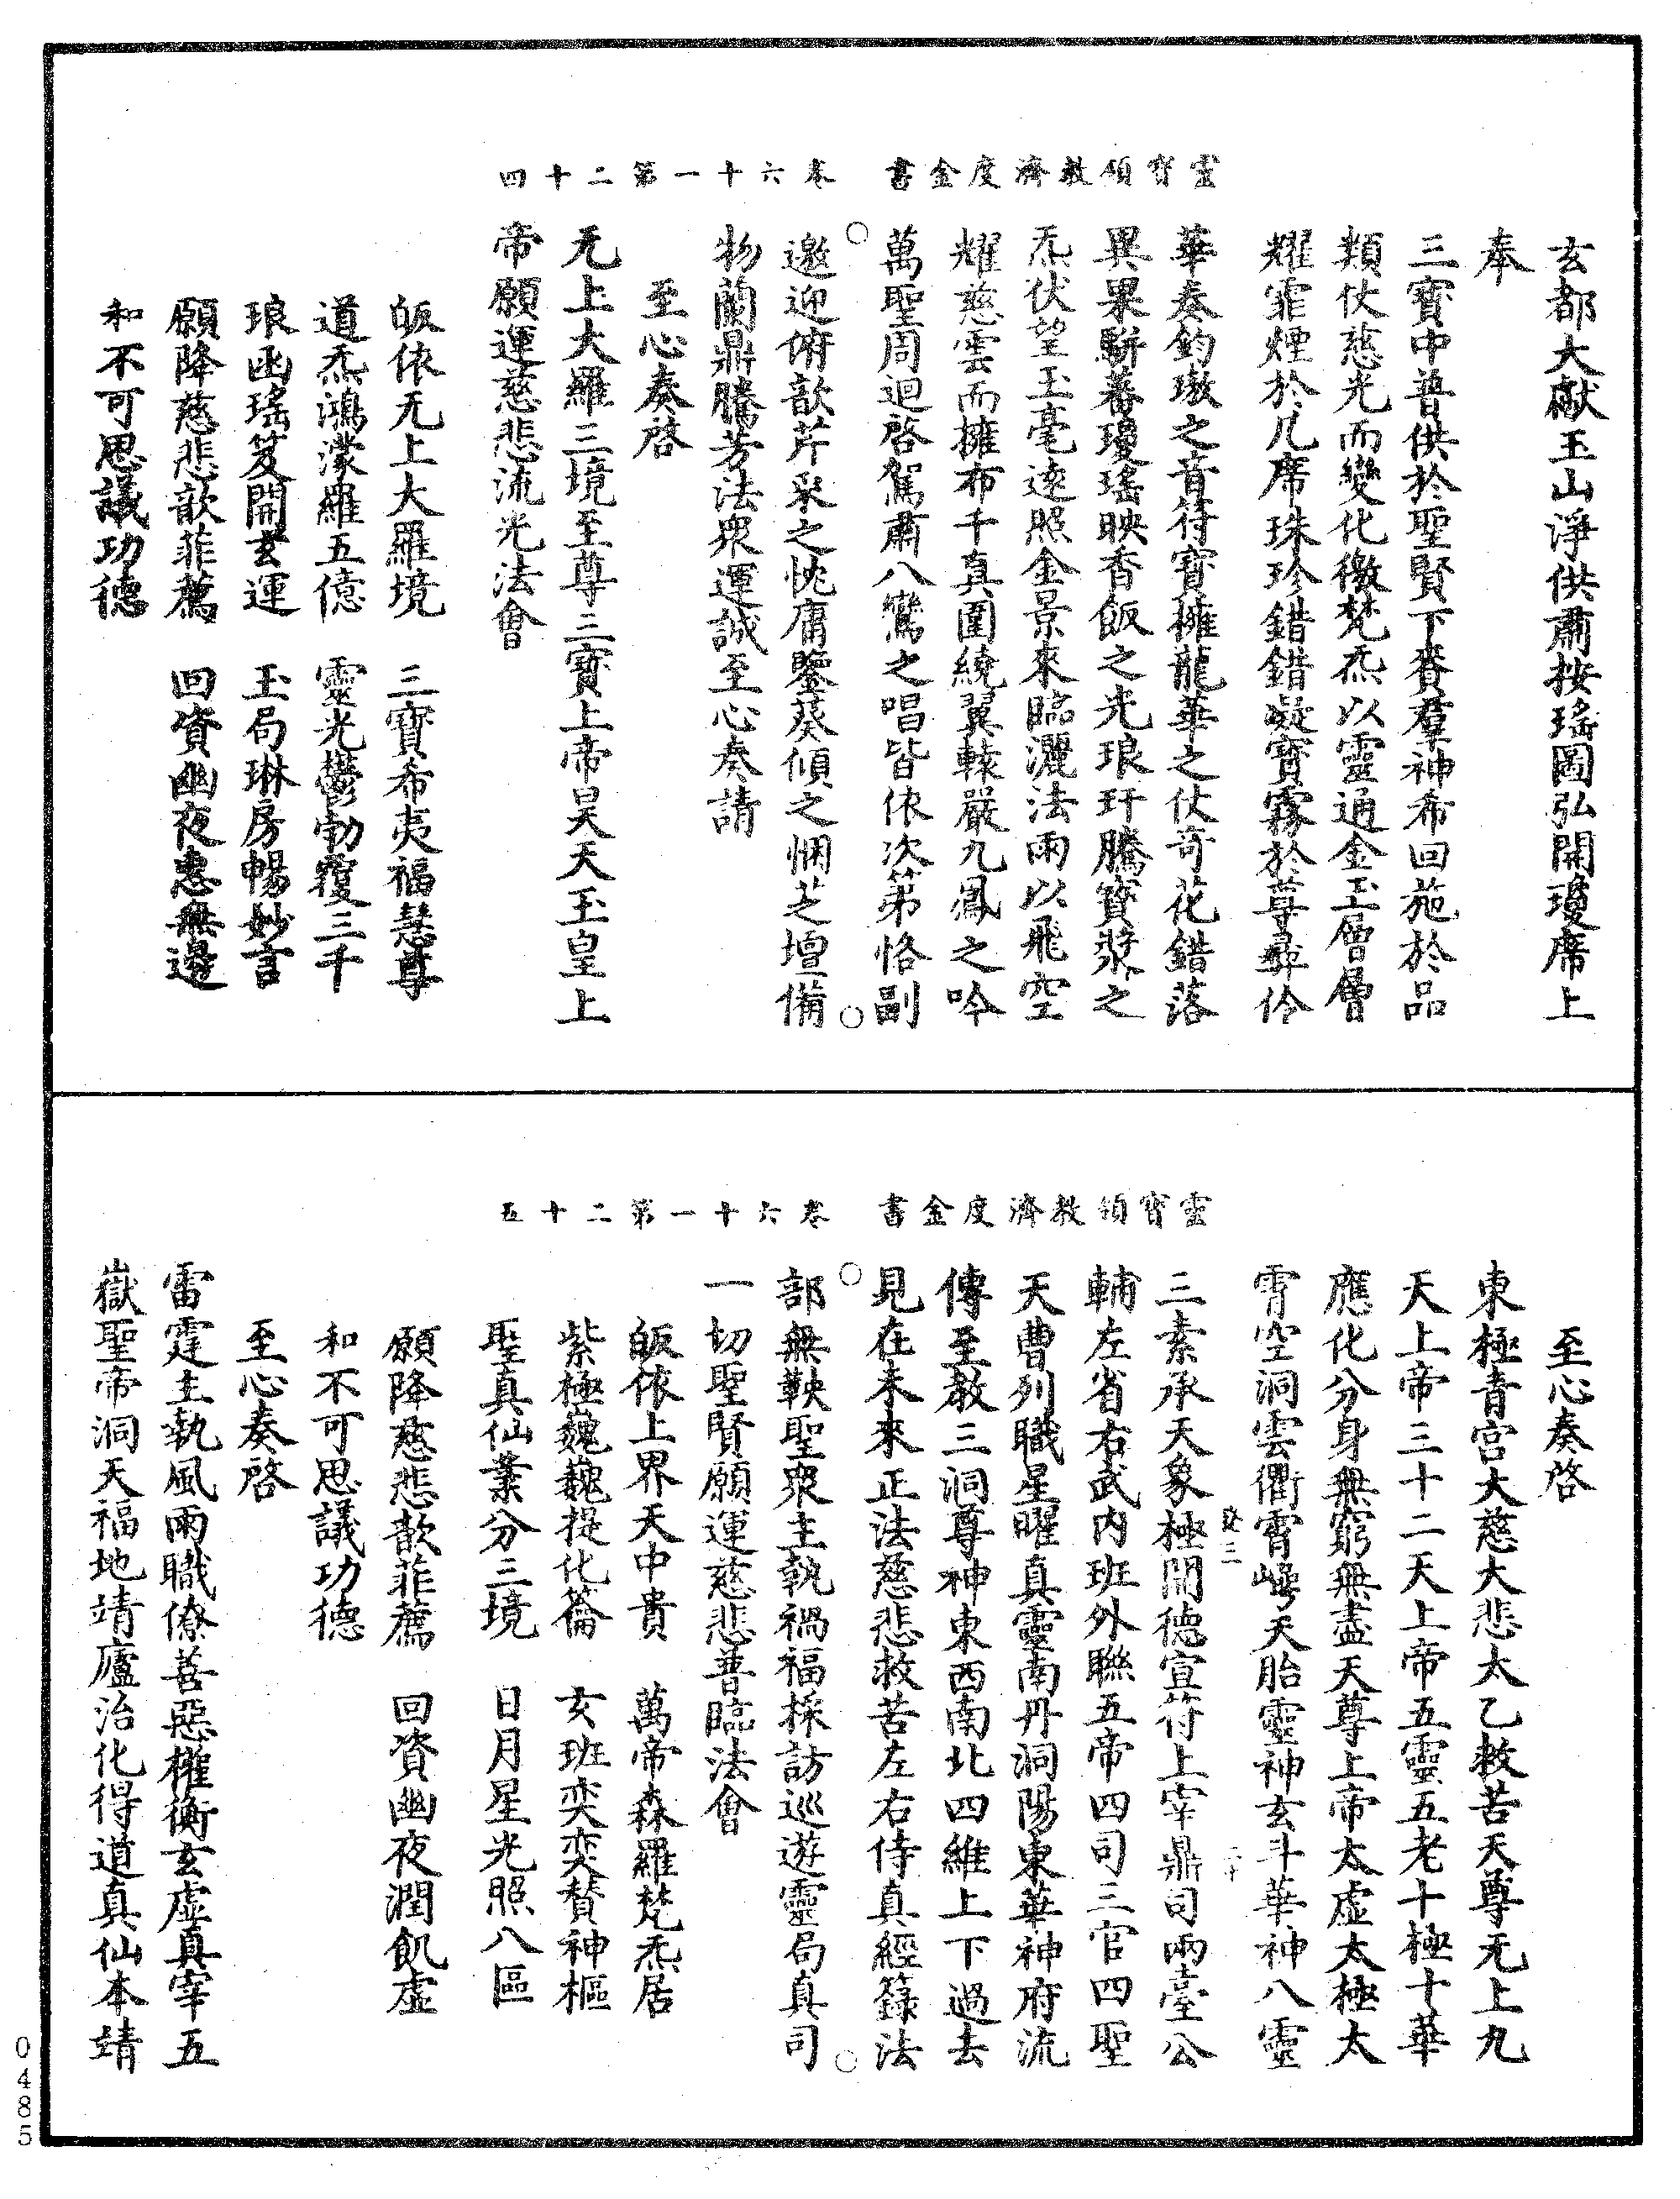 靈寶領教濟度金書　卷六十一第二十四
玄都大獻玉山淨供肅按瑤圖弘開瓊席上
奉
三寶中普供於聖賢下賚羣神希回施於品
類仗慈光而變化徼梵炁以靈通金玉層層
耀霏煙於几席珠珍錯錯凝寶霧於尊彝伶
華奏鈞璈之音符寶擁龍華之仗奇花錯落
異果駢蕃瓊瑤映香飯之光琅玕騰寶漿之
炁伏望玉毫遠照金景來臨灑法雨以飛空
耀慈雲而擁布千真圍繞翼轅嚴九鳳之吟
萬聖周迴啓駕肅八鸞之唱皆依次第恪副
邀迎俯歆芹采之忱庸鑒葵傾之悃芝壇備
物蘭鼎騰芳法衆運誠至心奏請
至心奏啓
无上大羅三境至尊三寶上帝昊天玉皇上
帝願運慈悲流光法會
皈依无上大羅境　三寶希夷福慧尊
道炁鴻濛羅五億　靈光鬱勃覆三千
琅函瑤笈開玄運　玉局琳房暢妙言
願降慈悲歆菲薦　回資幽夜惠無邊
和不可思議功德
靈寶領教濟度金書　卷六十一第二十五
至心奏啓
東極青宮大慈大悲太乙救苦天尊无上九
天上帝三十二天上帝五靈五老十極十華
應化分身無窮無盡天尊上帝太虛太極太
霄空洞雲衢霄嶀天胎靈神玄斗華神八靈
三素承天象極開德宣符上宰鼎司兩臺公
輔左省右武內班外聯五帝四司三官四聖
天曹列職星曜真靈南丹洞陽東華神府流
傳至教三洞尊神東西南北四維上下過去
見在未來正法慈悲救苦左右侍真經籙法
部無鞅聖衆主執禍福採訪巡遊靈局真司
一切聖賢願運慈悲普臨法會
皈依上界天中貴　萬帝森羅梵炁居
紫極巍巍提化籥　玄班奕奕贊神樞
聖真仙業分三境　日月星光照八區
願降慈悲歆菲薦　回資幽夜潤飢虛
和不可思議功德
至心奏啓
雷霆主執風雨職僚善惡權衡玄虛真宰五
嶽聖帝洞天福地靖廬治化得道真仙本靖
0485